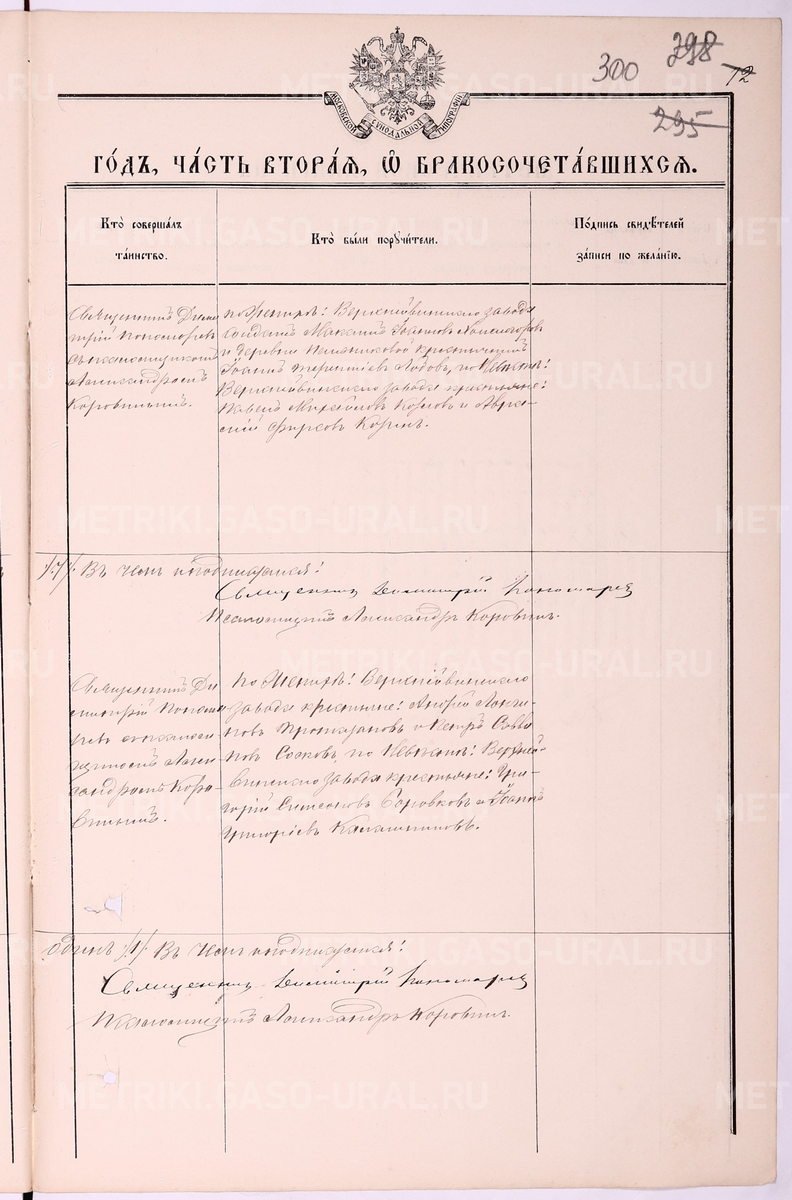 300
298
12
295
МОСКОВСКОЙ СѴНОДАЛЬНОЙ ТИПОГРАФІИ
ГО́ДЪ, ЧА́СТЬ ВТОРА́Я, Ѿ БРАКОСОЧЕТА́ВШИХСЯ.
Кто̀ соверша́лъ
та́инство.
Кто̀ бы́ли порꙋчи́тели.
По́дпись свидѣ́телей
за́писи по жела́нїю.
Священникъ Дими
трій Пономаревъ
съ псаломщикомъ
Александромъ
Коровинымъ.
по Женихѣ: Верхнейвинскаго завода
солдатъ Максимъ Іоанновъ
и деревни крестьянинъ
Іоаннъ Терентіевъ по Невѣстѣ:
Верхнейвинскаго завода крестьяне:
Павелъ Михайловъ Козловъ и
Фирсовъ
/:1/: Въ чемъ и подписуемся:
Священникъ Димитрій Пономарев
Псаломщикъ Александръ Коровинъ.
Священникъ Ди
митрій Понома
ревъ съ псалом
щикомъ Алек
сандромъ Коро
винымъ.
по Женихѣ: Верхнейвинскаго
завода крестьяне: Андрей Логи-
новъ и Петръ Савви
новъ по Невѣстѣ: Верхней-
винскаго завода крестьяне: Гри-
горій Симеоновъ Боровковъ и Іоаннъ
Григоріевъ Калашниковъ.
одинъ /:1/: Въ чемъ и подписуемся:
Священник Димитрій Пономарев
Псаломщикъ Александръ Коровинъ.
METRIKI.GASO-URAL.RU